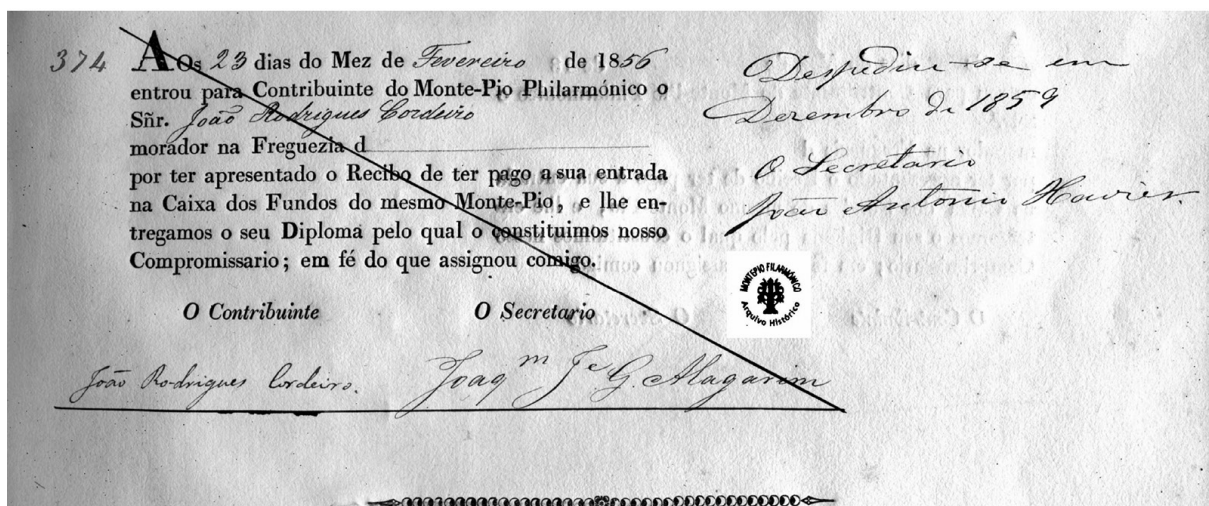 374
Aos 23 dias do Mez de Fevereiro de 1856
entrou para Contribuinte do Monte-Pio Philarmónico o
Sñr. João Rodrigues Cordeiro
morador na Freguezia d
por ter apresentado o Recibo de ter pago a sua entrada
na Caixa dos Fundos do mesmo Monte-Pio, e lhe en-
tregamos o seu Diploma pelo qual o constituimos nosso
Compromissario; em fé do que assignou comigo.
O Contribuinte O Secretario
João Rodrigues Cordeiro. Joaqm Je G. Alagarim
Despediu-se em
Dezembro de 1859
O Secretario
João Antonio Xavier.
MONTEPIO FILARMÓNICO
Arquivo Histórico